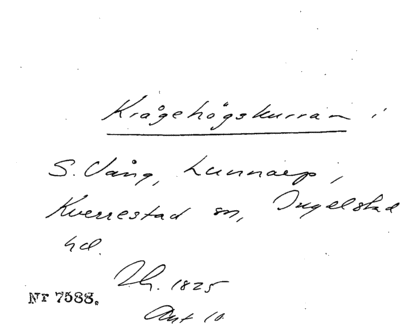 Krågehögskurran i
S. Vång, Lunnarp,
Kverrestad sn, Ingelstad
hd.
Th. 1825
Nr 7588.
Ant 10